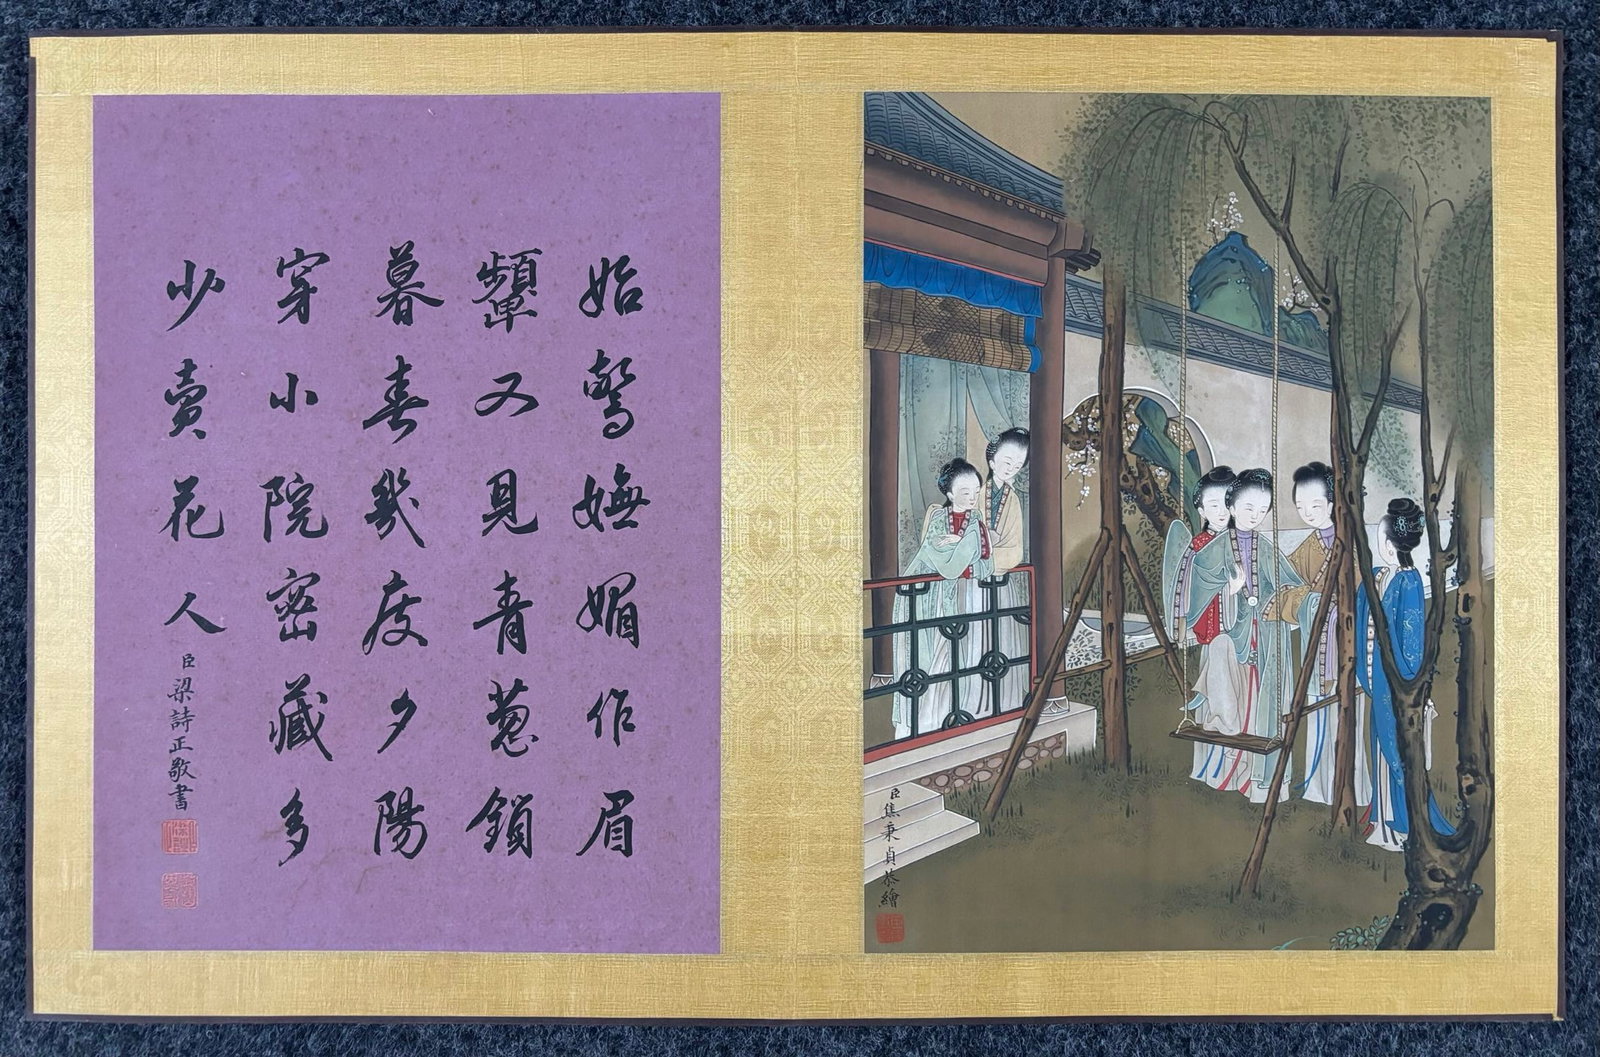 始驚嫵媚作眉
顰又見青蔥鎖
暮春幾度夕陽
穿小院密藏多
少賣花人
臣梁詩正敬書
臣焦秉貞恭繪